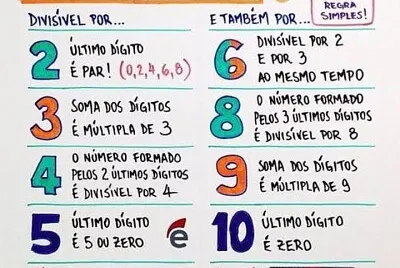 DIVISÍVEL POR...
2
ÚLTIMO DÍGITO
É PAR! (0,2,4,6,8)
3
SOMA DOS DÍGITOS
É MÚLTIPLA DE 3
4
O NÚMERO FORMADO
PELOS 2 ÚLTIMOS DÍGITOS
É DIVISÍVEL POR 4
5
ÚLTIMO DÍGITO
É 5 OU ZERO
e
E TAMBÉM POR...
REGRA
SIMPLES!
6
DIVISÍVEL POR 2
E POR 3
AO MESMO TEMPO
8
O NÚMERO FORMADO
PELOS 3 ÚLTIMOS DÍGITOS
É DIVISÍVEL POR 8
9
SOMA DOS DÍGITOS
É MÚLTIPLA DE 9
10
ÚLTIMO DÍGITO
É ZERO